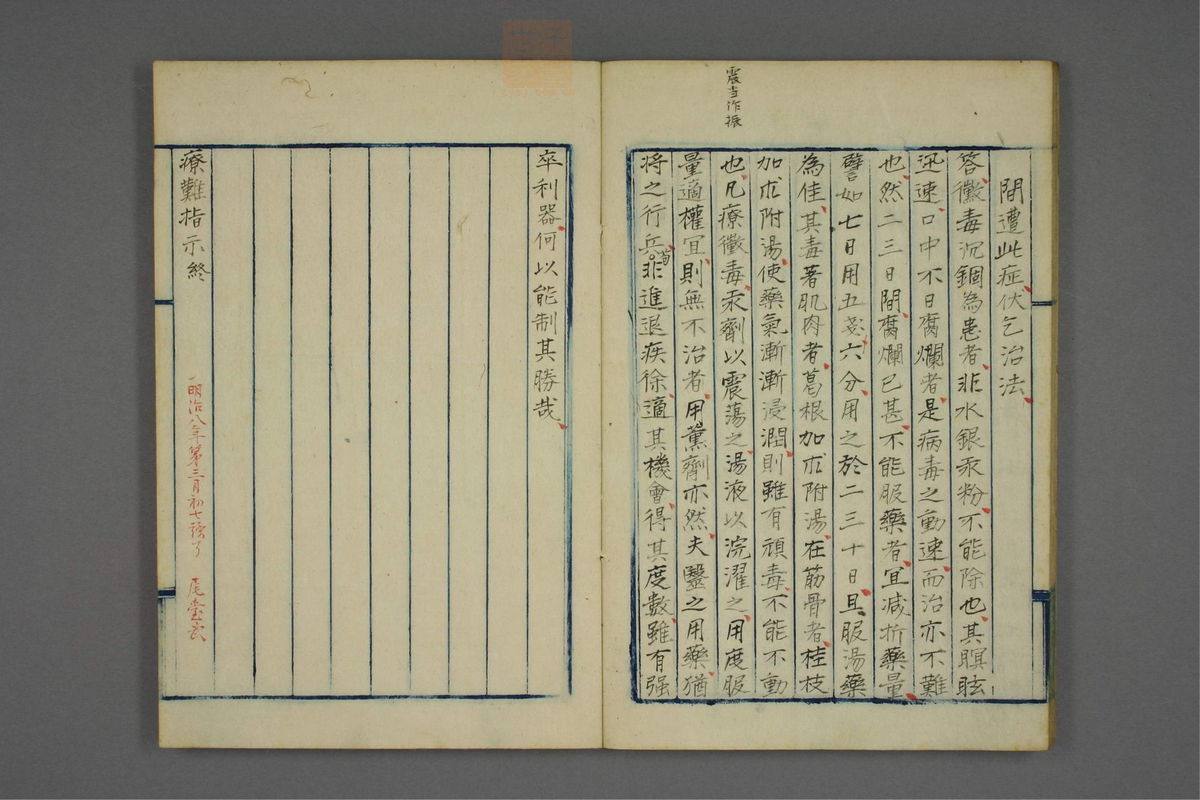 震当作振
間遭此症伏乞治法
答黴毒沉錮為患者非水銀汞粉不能除也其瞑眩
迅速口中不日腐爛者是病毒之動速而治亦不難
也然二三日間腐爛已甚不能服藥者宜減折藥量
譬如七日用五分六分用之於二三十日且服湯藥
為佳其毒著肌肉者葛根加朮附湯在筋骨者桂枝
加朮附湯使藥氣漸漸浸潤則雖有頑毒不能不動
也凡療黴毒汞劑以震蕩之湯液以浣濯之用度服
量適權宜則無不治者用薰劑亦然夫醫之用藥猶
将之行兵苟非進退疾徐適其機會得其度数雖有强
卒利器何以能制其勝哉
療難指示終
明治八年第三月初七